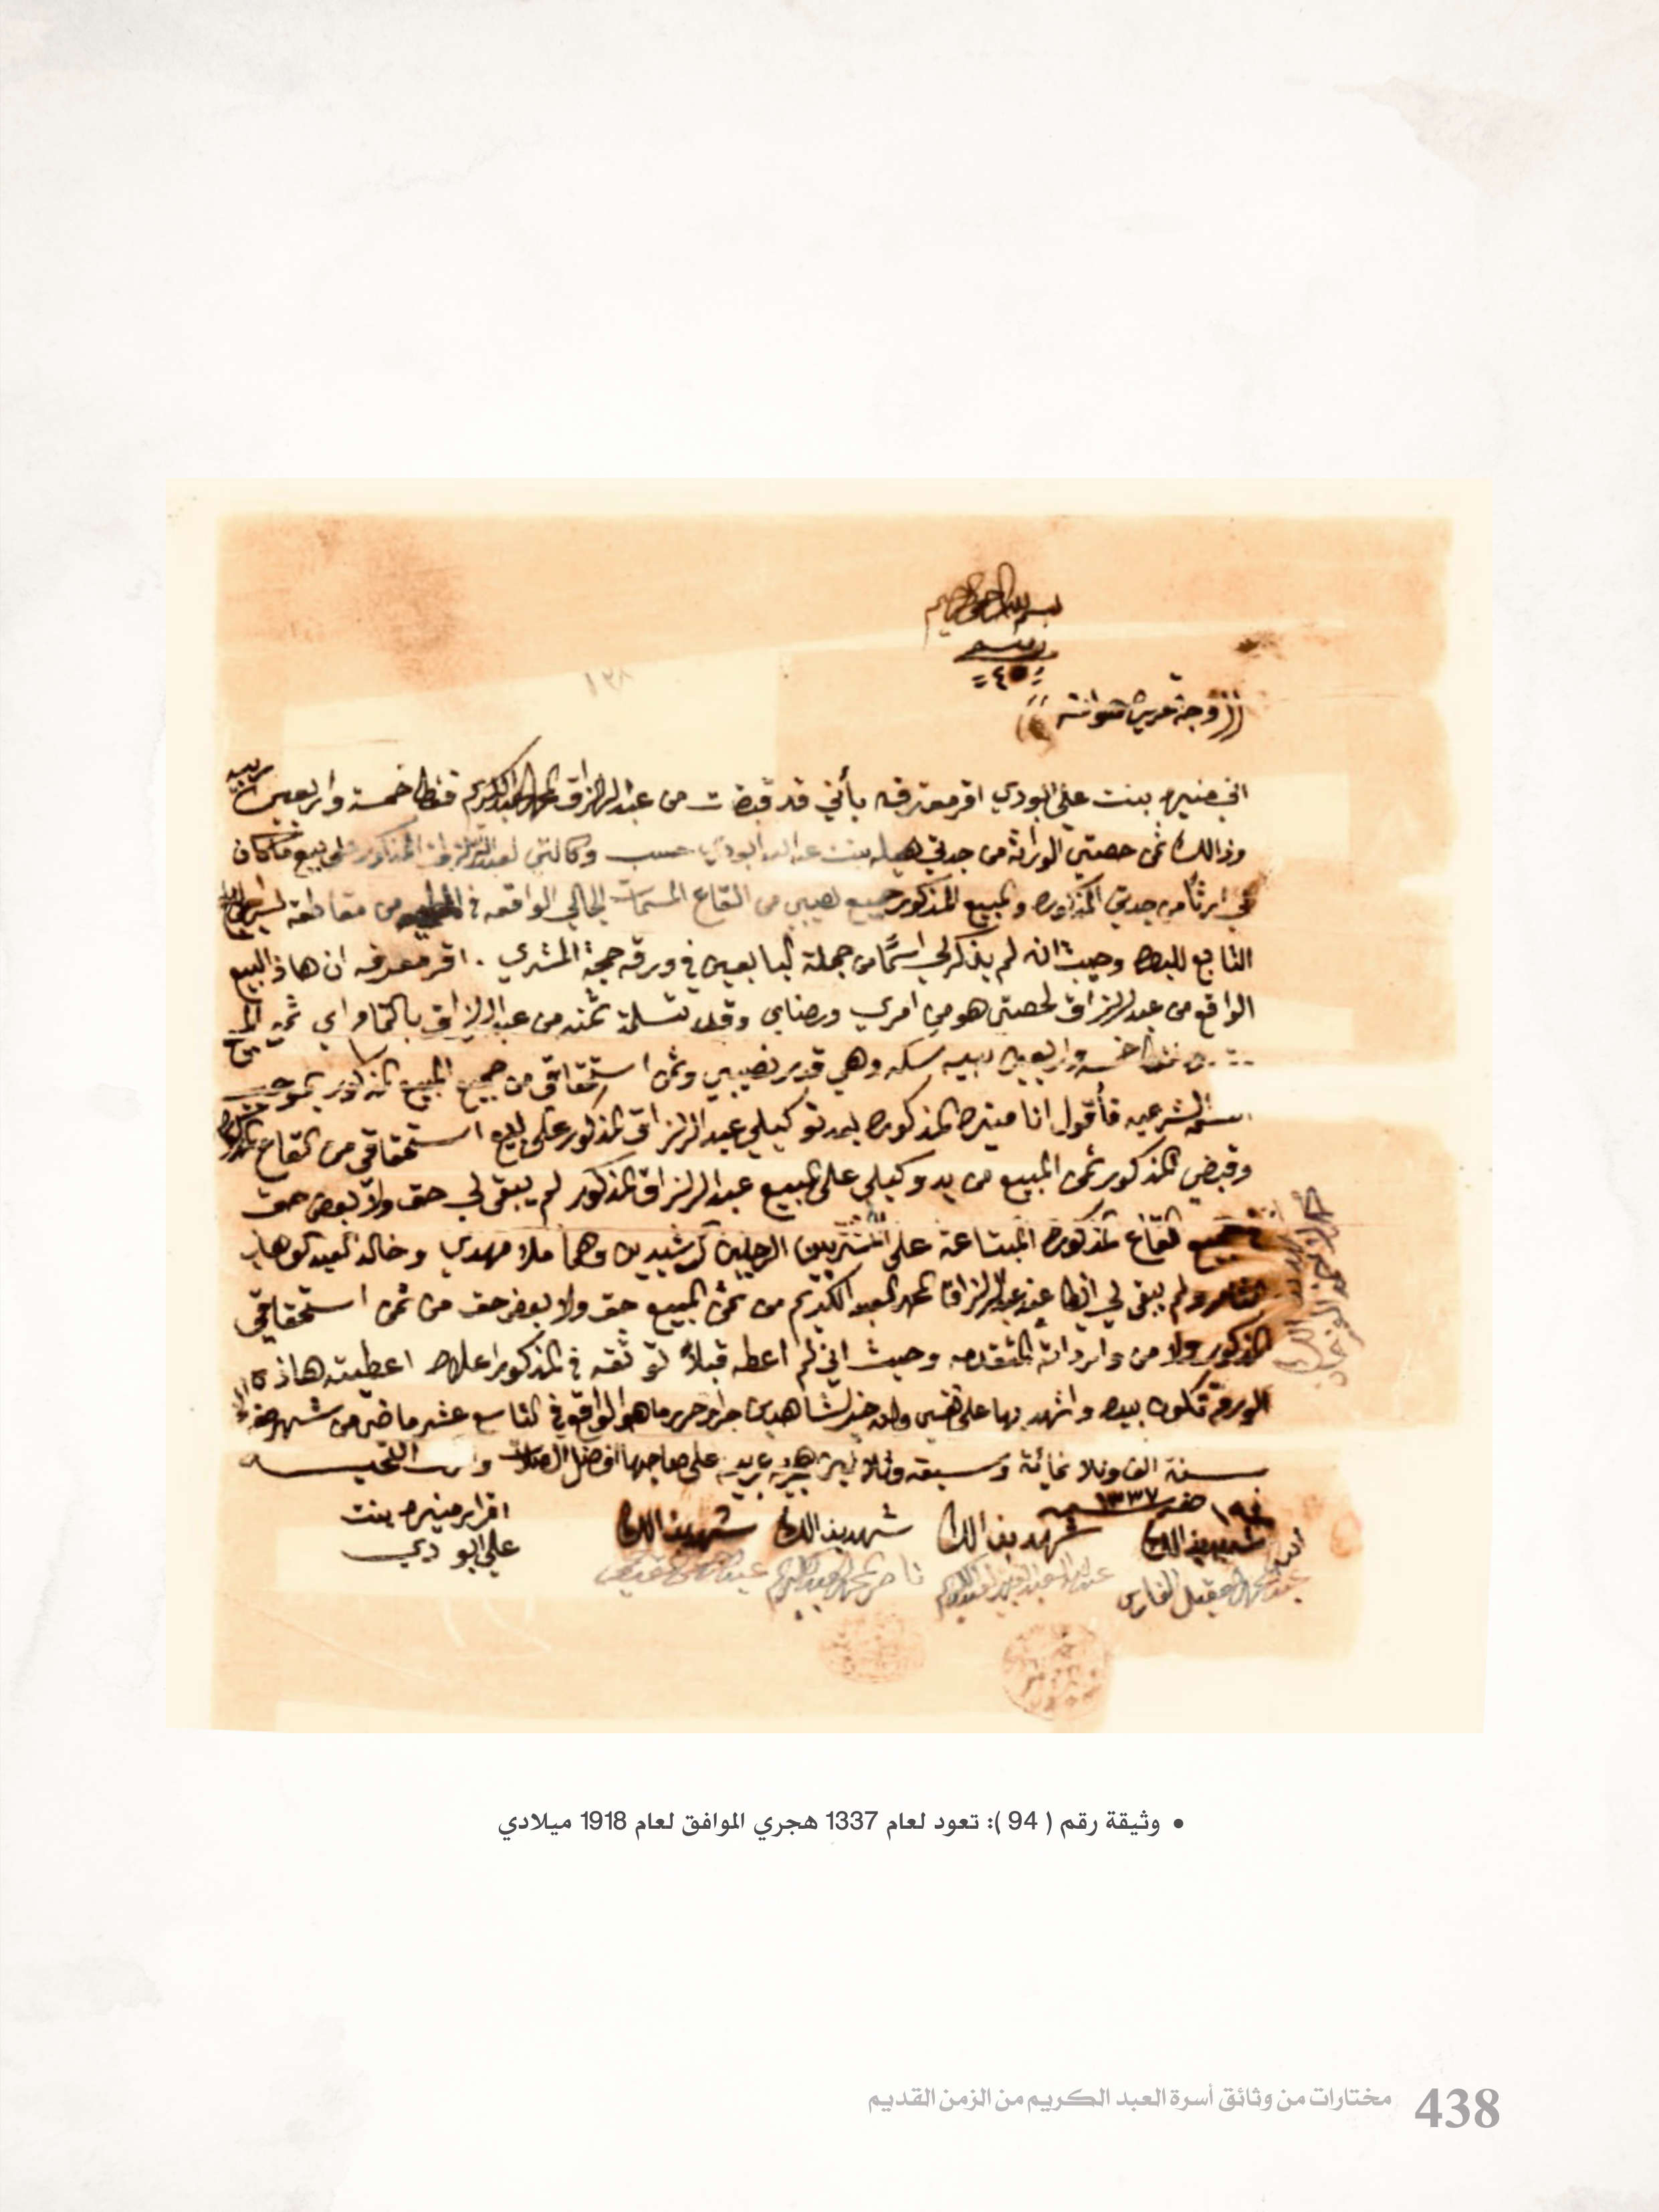 بسم الله الرحمن الرحيم
= ٤٥ =
اني منيره بنت علي البودي اقر معترفه بأني قد قبضت من عبد الرزاق المحمد العبد الكريم فقط خمسة واربعين ربيه
وذالك ثمن حصتي الوراثة من جدتي هيله بنت عبد الله البودي حسب وكالتي لعبد الرزاق المذكور على بيع ما كان
لي ارثًا من جدتي المذكوره والمبيع المذكور جميع نصيبي من القاع المسمات الواقعه في من مقاطعة
التابع للبصره وحيث انه لم يذكر لي اسمًا من جملة البايعين في ورقه حجة المشتري . اقر معترفه ان هاذ البيع
الواقع من عبد الرزاق لحصتي هو من امري ورضاي وقد تسلمة ثمنه من عبد الرزاق بالتمام اي ثمن المبيع
فقط خمسه واربعين ربيه سكه وهي قدر نصيبي وثمن استحقاقي من جميع المبيع المذكور بموجب
الشرعيه فأقول انا منيره المذكوره بعد توكيلي عبد الرزاق المذكور على بيع استحقاقي من القاع المذكوره
وقبضي المذكور ثمن المبيع من يد وكيلي على المبيع عبد الرزاق المذكور لم يبقى لي حق ولا بعض حق
في جميع القاع المذكوره المبتاعة على المشتريين الرجلين الرشيدين وهما ملا مهدي وخالد العبد الوهاب
ولم يبقى لي ايضا عند عبد الرزاق المحمد العبد الكريم من ثمن المبيع حق ولا بعض حق من ثمن استحقاقي
المذكور ولا من وارداته المتقدمه وحيث اني لم اعطه قبلاً توثقه في المذكور اعلاه اعطيته هاذه
الورقة تكون بيده واشهد بها على نفسي والله خير الشاهدين جرا وحرر ما هو الواقع في التاسع عشر ماضي من شهر صفر
سنة الف وثلاثمائة وسبعه وثلاثين هجريه عربيه على صاحبها افضل الصلات والتحيه
١٩ صفر سنه ١٣٣٧
شهد بذالك شهد بذالك شهد بذالك شهد بذالك
اقرار منيره بنت
علي البودي
محمد العقيل الفارس
ناصر المحمد العبد الكريم
• وثيقة رقم ( 94 ): تعود لعام 1337 هجري الموافق لعام 1918 ميلادي
438 مختارات من وثائق أسرة العبد الكريم من الزمن القديم